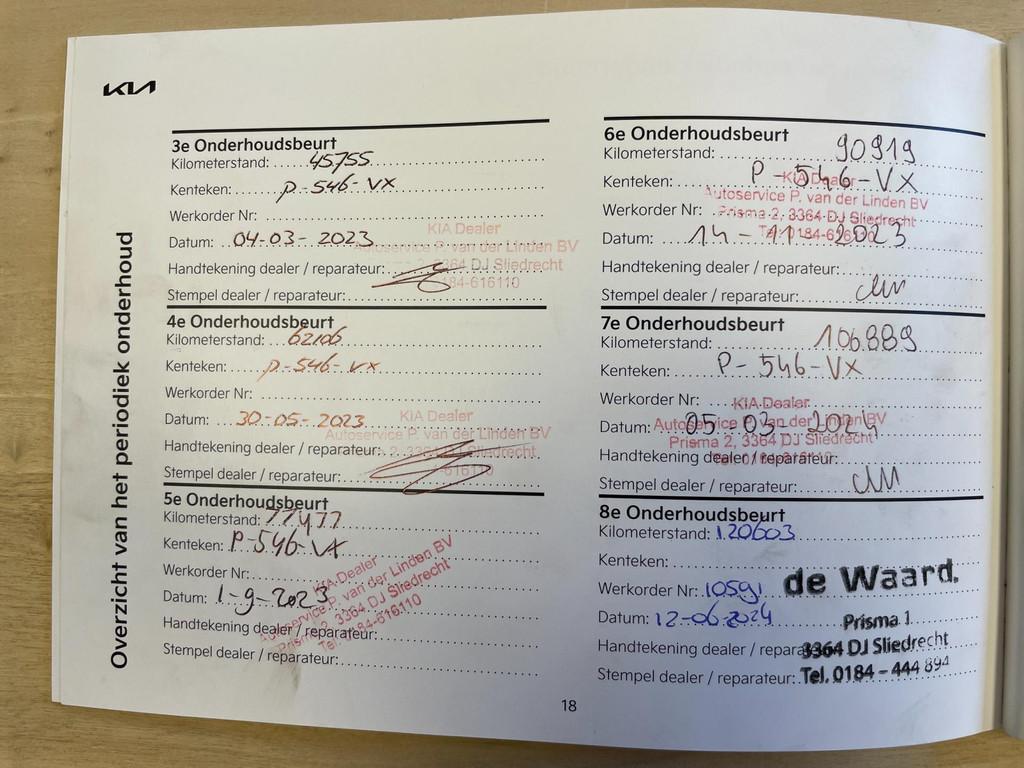 KIA
Overzicht van het periodiek onderhoud
3e Onderhoudsbeurt
Kilometerstand: 45755
Kenteken: P-546-VX
Werkorder Nr:
Datum: 04-03-2023
Handtekening dealer / reparateur:
Stempel dealer / reparateur:
KIA Dealer
Autoservice P. van der Linden BV
2, 3364 DJ Sliedrecht
84-616110
4e Onderhoudsbeurt
Kilometerstand: 62106
Kenteken: P-546-VX
Werkorder Nr:
Datum: 30-05-2023
Handtekening dealer / reparateur:
Stempel dealer / reparateur:
KIA Dealer
Autoservice P. van der Linden BV
2, 3364 DJ Sliedrecht
616110
5e Onderhoudsbeurt
Kilometerstand: 77477
Kenteken: P-546-VX
Werkorder Nr:
Datum: 1-9-2023
Handtekening dealer / reparateur:
Stempel dealer / reparateur:
KIA Dealer
Autoservice P. van der Linden BV
Prisma 2, 3364 DJ Sliedrecht
Tel. 0184-616110
6e Onderhoudsbeurt
Kilometerstand: 90919
Kenteken: P-546-VX
Werkorder Nr:
Datum: 14-11-2023
Handtekening dealer / reparateur:
Stempel dealer / reparateur:
KIA Dealer
Autoservice P. van der Linden BV
Prisma 2, 3364 DJ Sliedrecht
Tel. 0184-616
7e Onderhoudsbeurt
Kilometerstand: 106.889
Kenteken: P-546-VX
Werkorder Nr:
Datum: 05-03-2024
Handtekening dealer / reparateur:
Stempel dealer / reparateur:
KIA Dealer
Autoservice P. van der Linden BV
Prisma 2, 3364 DJ Sliedrecht
8e Onderhoudsbeurt
Kilometerstand: 120603
Kenteken:
Werkorder Nr: 10591
Datum: 12-06-2024
Handtekening dealer / reparateur:
Stempel dealer / reparateur:
de Waard.
Prisma 1
3364 DJ Sliedrecht
Tel. 0184 - 444 894
18